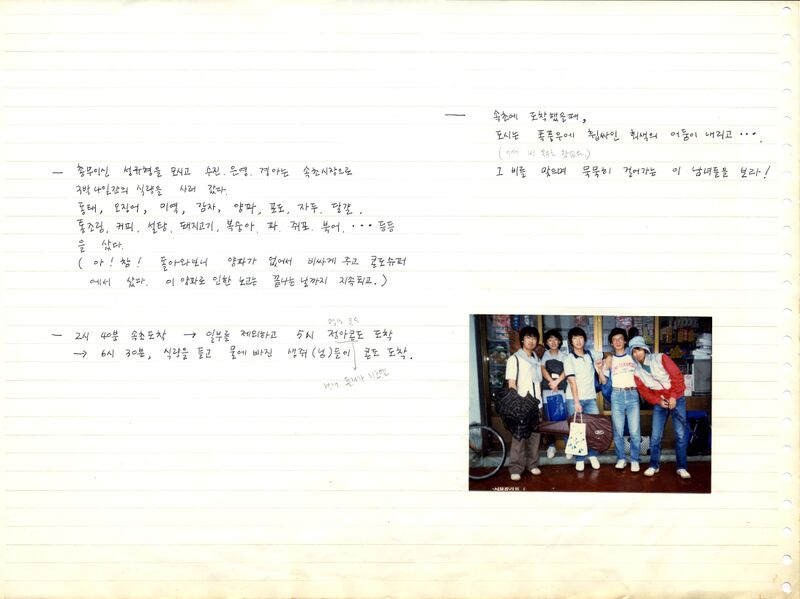 — 총무이신 성규형을 모시고 수진, 은영, 경아는 속초시장으로
3박 4일간의 식량을 사러 갔다.
동태, 오징어, 미역, 감자, 양파, 포도, 자두, 달걀,
통조림, 커피, 설탕, 돼지고기, 복숭아, 파, 쥐포, 북어, ··· 등등
을 샀다.
( 아! 참! 돌아와보니 양파가 없어서 비싸게 주고 콘도슈퍼
에서 샀다. 이 양파로 인한 노고는 끝나는 날까지 지속되고.)
— 2시 40분 속초도착 → 일부를 제외하고 5시 콘도 도착
→ 6시 30분, 식량을 들고 물에 빠진 생쥐(님)들이 콘도 도착.
— 속초에 도착했을때,
도시는 폭풍우에 휩싸인 회색의 어둠이 내리고 ···.
그 비를 맞으며 묵묵히 걸어가는 이 남녀들을 보라!